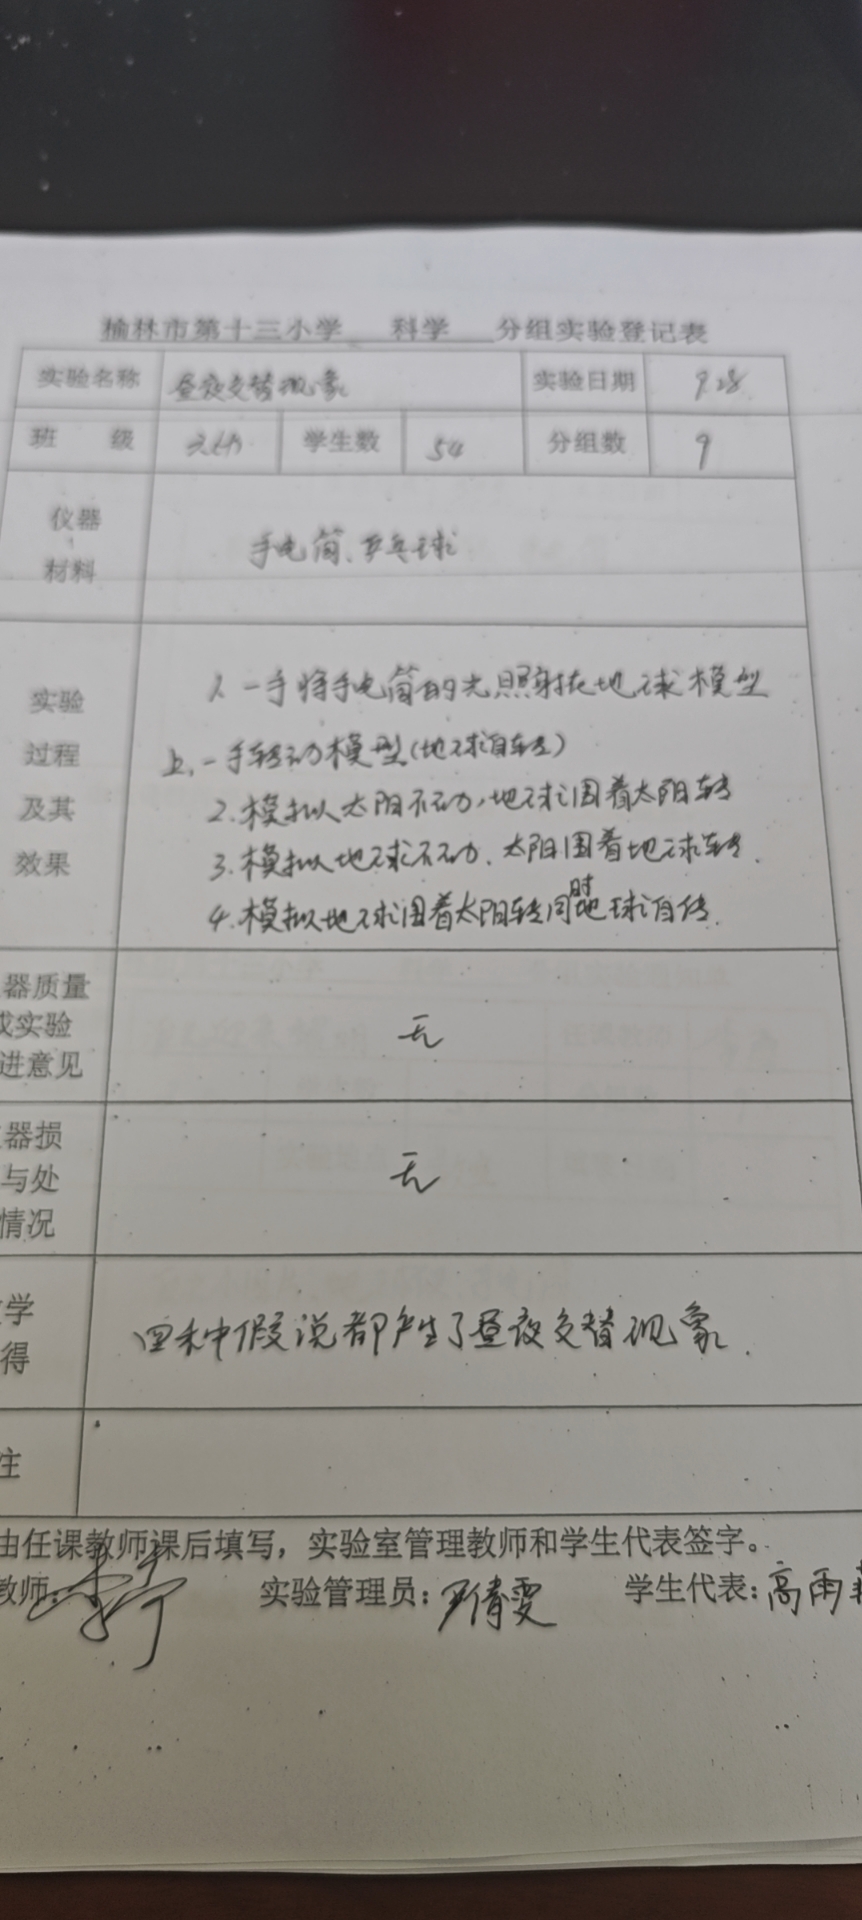 榆林市第十三小学 科学 分组实验登记表
实验名称 昼夜交替现象 实验日期 9.28
班 级 学生数 54 分组数 9
仪器
材料
手电筒、乒乓球
实验
过程
及其
效果
1. 一手将手电筒的光照射在地球模型
上,一手转动模型(地球自转)
2.模拟太阳不动,地球围着太阳转
3.模拟地球不动、太阳围着地球转.
4.模拟地球围着太阳转同时地球自传.
器质量
实验
进意见
无
器损
与处
情况
无
学
得
四种假说都产生了昼夜交替现象.
注
由任课教师课后填写,实验室管理教师和学生代表签字。
教师: 实验管理员: 倩雯 学生代表:高雨